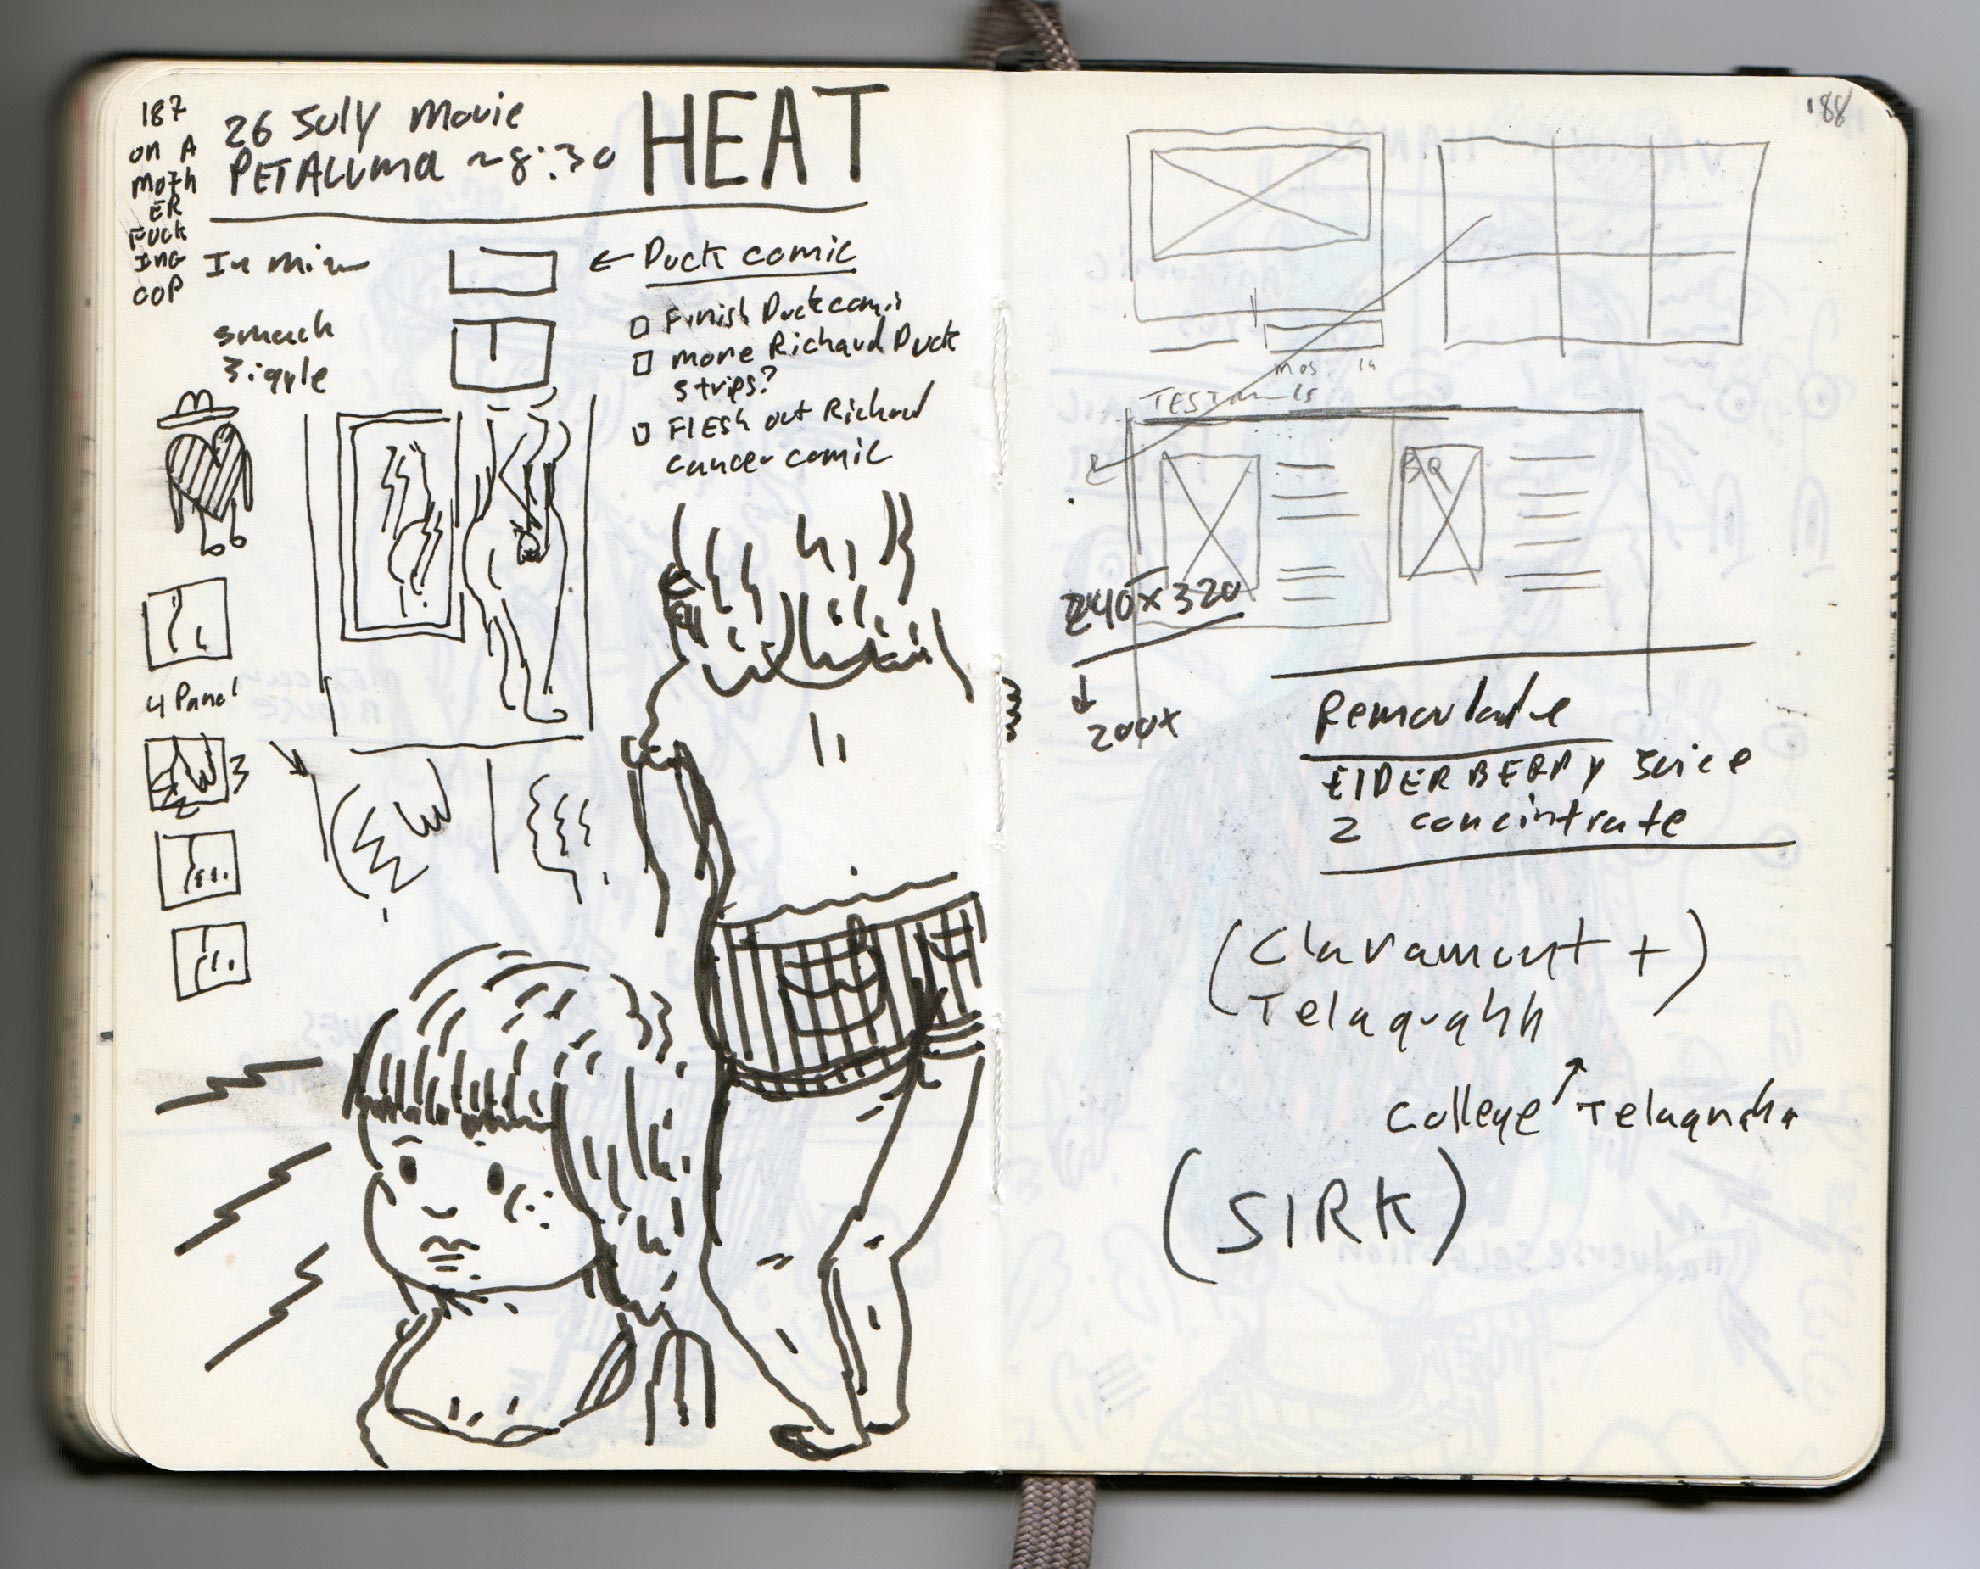 187
on A
moth
ER
Fuck
Ing
COP
26 July movie
PETALUMA ~8:30
HEAT
In
← Duck comic
smack
Finish Duck comic
more Richard Duck
strips?
Flesh out Richard
cancer comic
4 Panel
3
2
188
240 x 320
200x
Remoulade
ElDERBERRY Juice
2 concintrate
(Claramount +)
Telagrahh
College Telagraha
(SIRK)